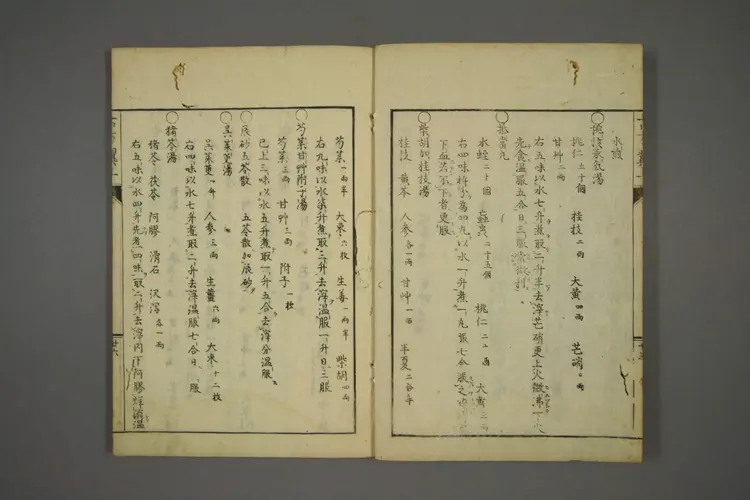 水滅
○桃核承氣湯
桃仁五十個 桂枝二兩 大黃四兩 芒硝二兩
甘艸二兩
右五味以水七升煮取二升半去滓芒硝更上火微沸下火
先食溫服五合日三服當微利
○抵當丸
水蛭二十個 䖟虫二十五個 桃仁二十 大黃三兩
右四味 爲四丸以水一升煮一丸取七合服之
下血若不下者更服
○柴胡加桂枝湯
桂枝 黃芩 人參各一兩 甘艸一個 半夏二合半
芍藥一兩半 大棗六枚 生姜一兩半 柴胡四兩
右九味以水柒升煮取三升去滓溫服一升日三服
○芍藥甘艸附子湯
芍藥三兩 甘艸三兩 附子一枚
已上三味以水五升煮取一升五合去滓分溫服
○辰砂五苓散 五苓散加辰砂
○吳茱萸湯
吳茱萸一升 人參三兩 生薑六兩 大棗十二枚
右四味以水七升煮取二升去滓溫服七合日 服
○猪苓湯
猪苓 茯苓 阿膠 滑石 沢瀉各一兩
右五味以水四升先煮四味取二升去滓內下阿膠烊消溫
廿六